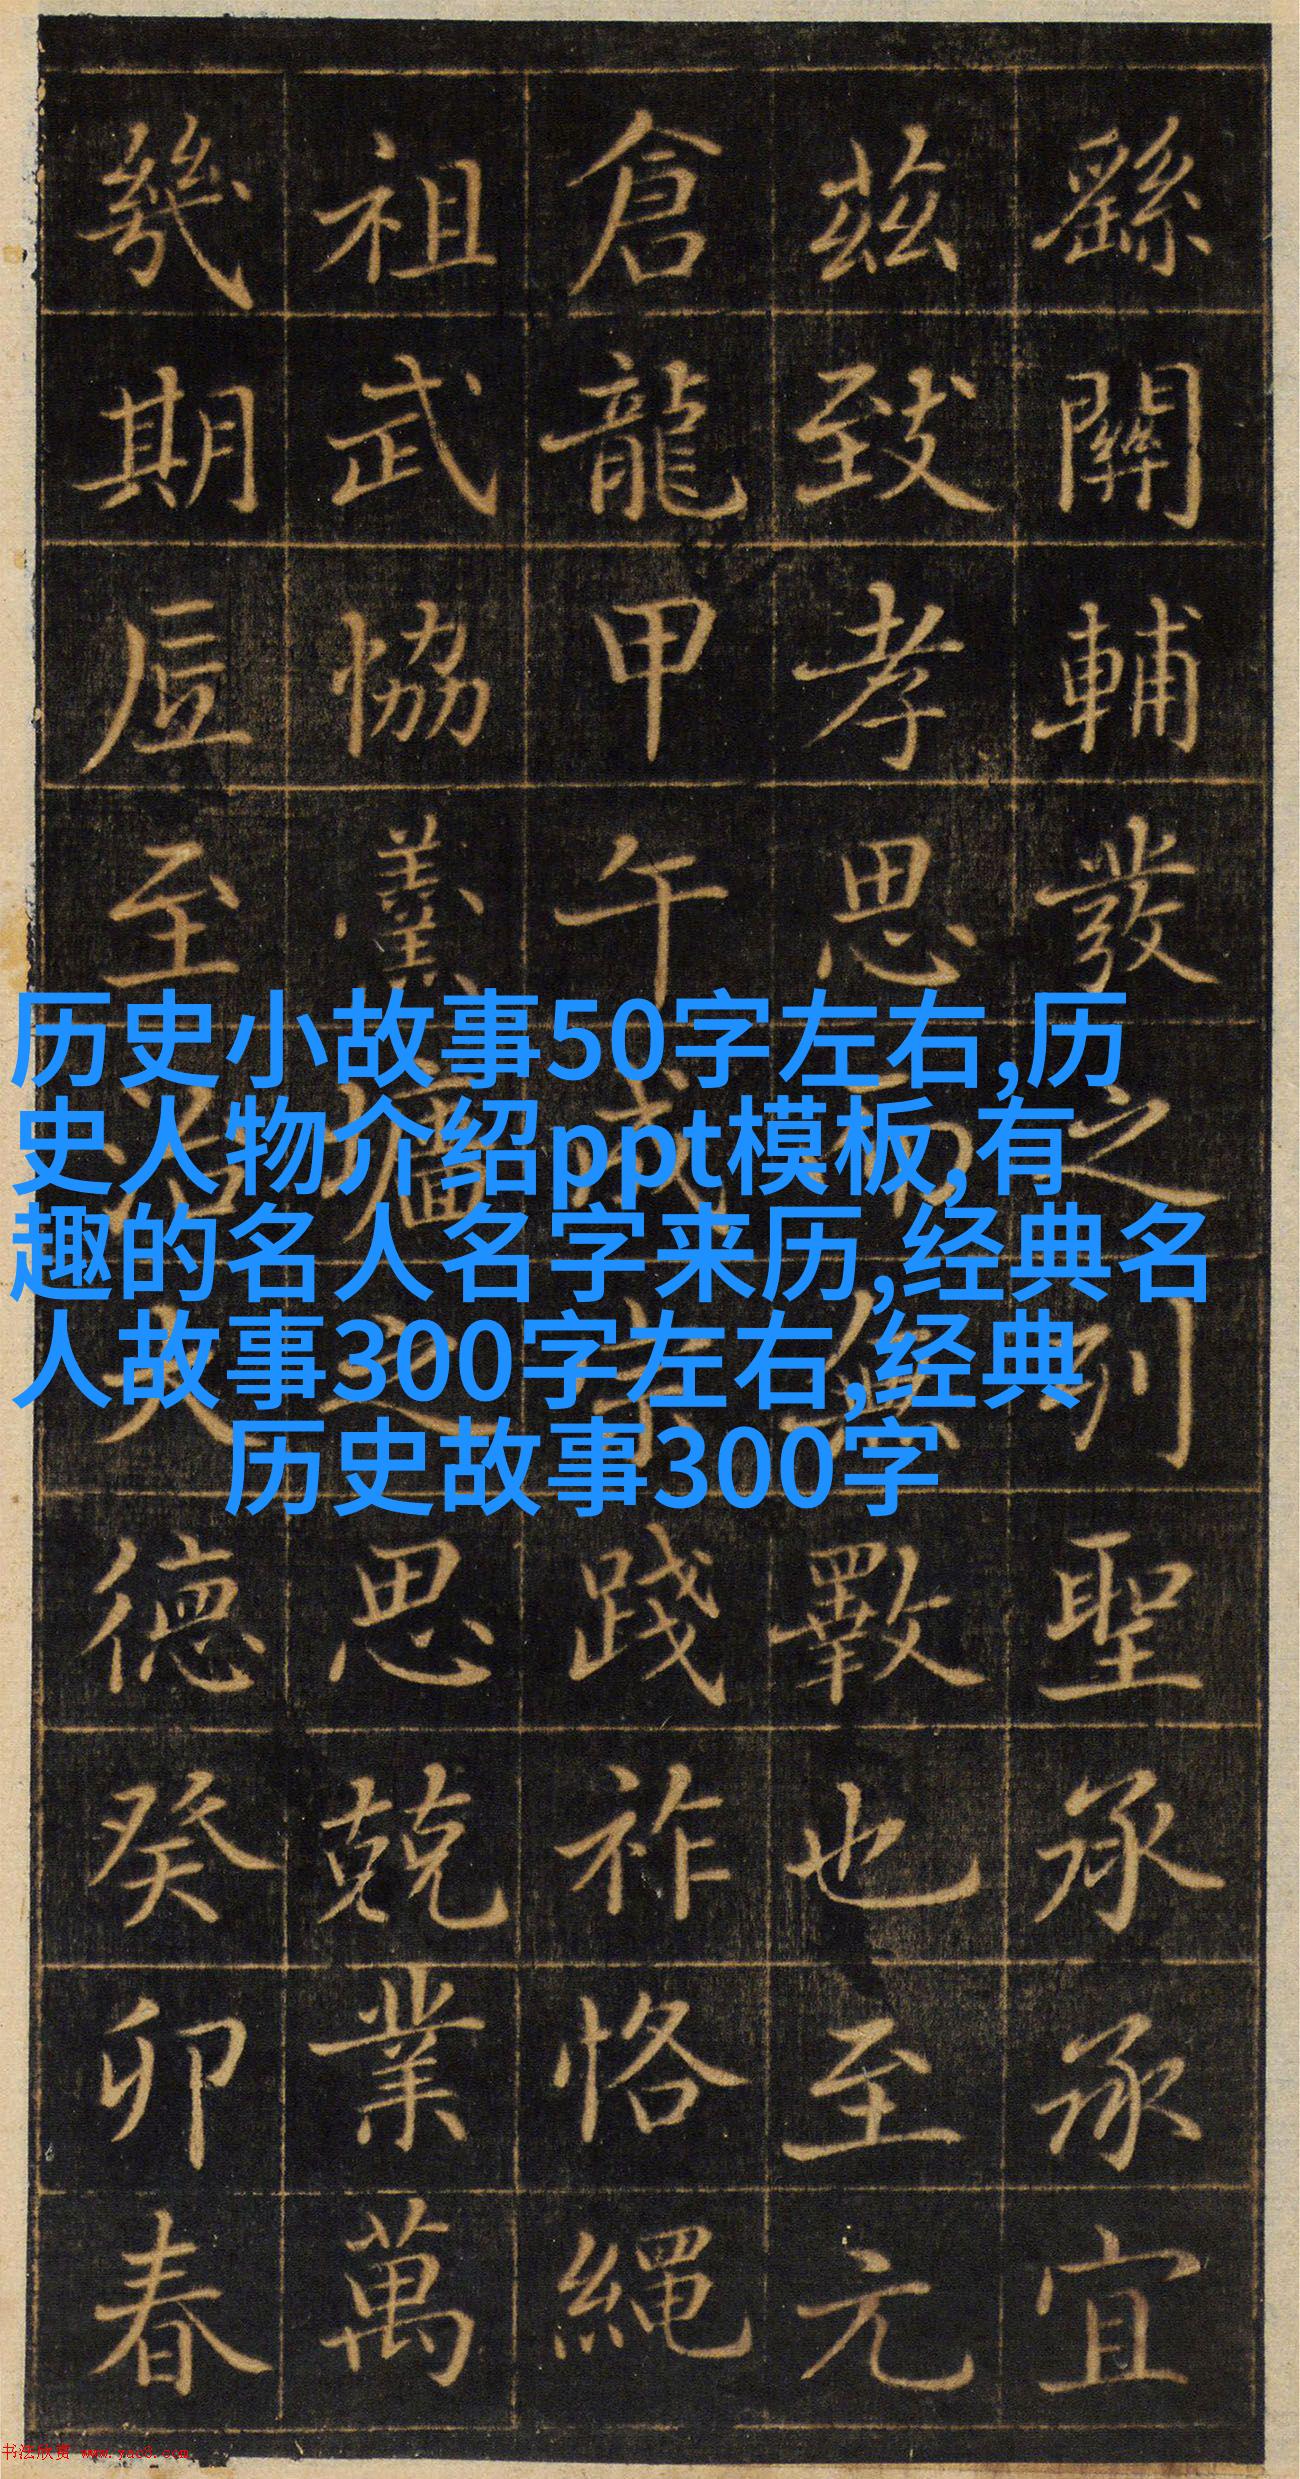 历史小故事50字左右,历
史人物介绍ppt模板,有
趣的名人名字来历,经典名
人故事300字左右,经典
历史故事300字
繇關輔發之列聖承承宜
茲致孝思而無斁也至元
倉龍甲午成宗踐祚恪繩
祖武協羹墻之思兢業萬
幾期至治大德癸卯春
书法欣赏 www.yac8.com